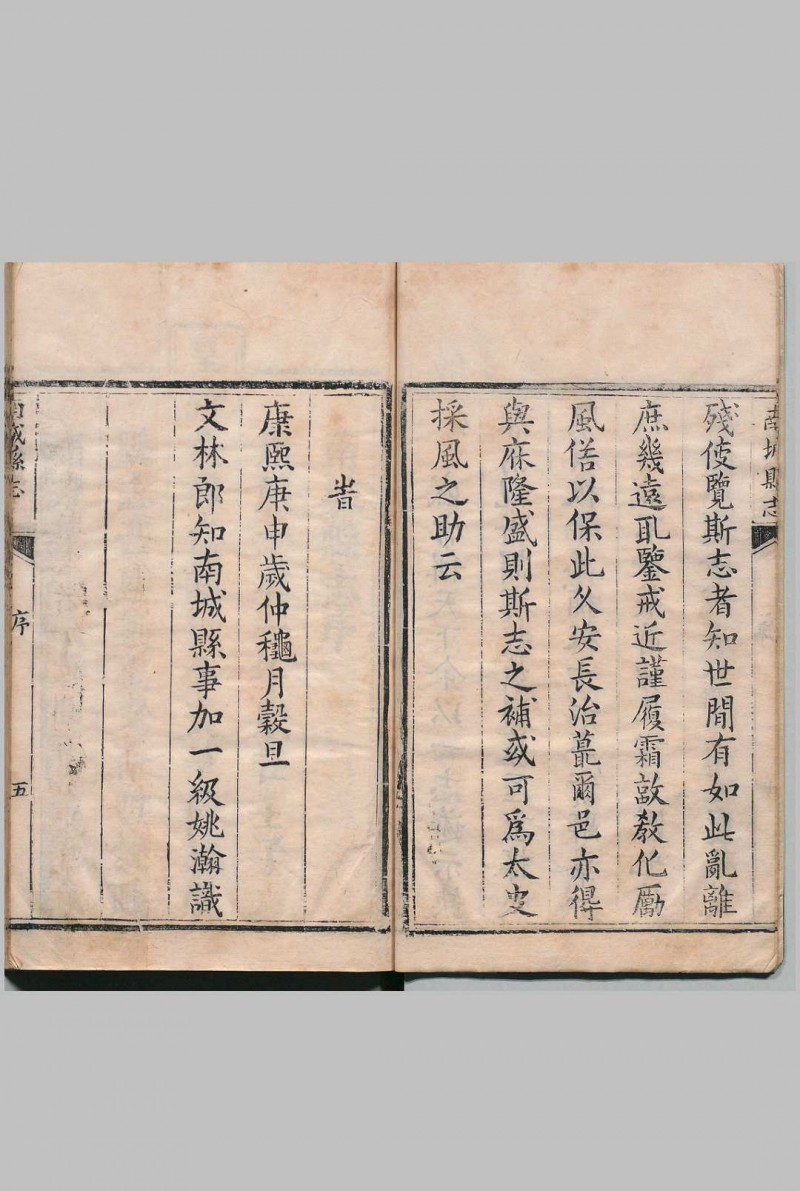 南城縣志
殘使覽斯志者知世間有如此亂離
庶幾遠瓦鑒戒近謹履霜敦教化勵
風俗以保此久安長治蕞爾邑亦得
與庥隆盛則斯志之補或可爲太史
採風之助云
旹
康熙庚申歲仲穐月穀旦
文林郎知南城縣事加一級姚瀚識
南城縣志
序
五